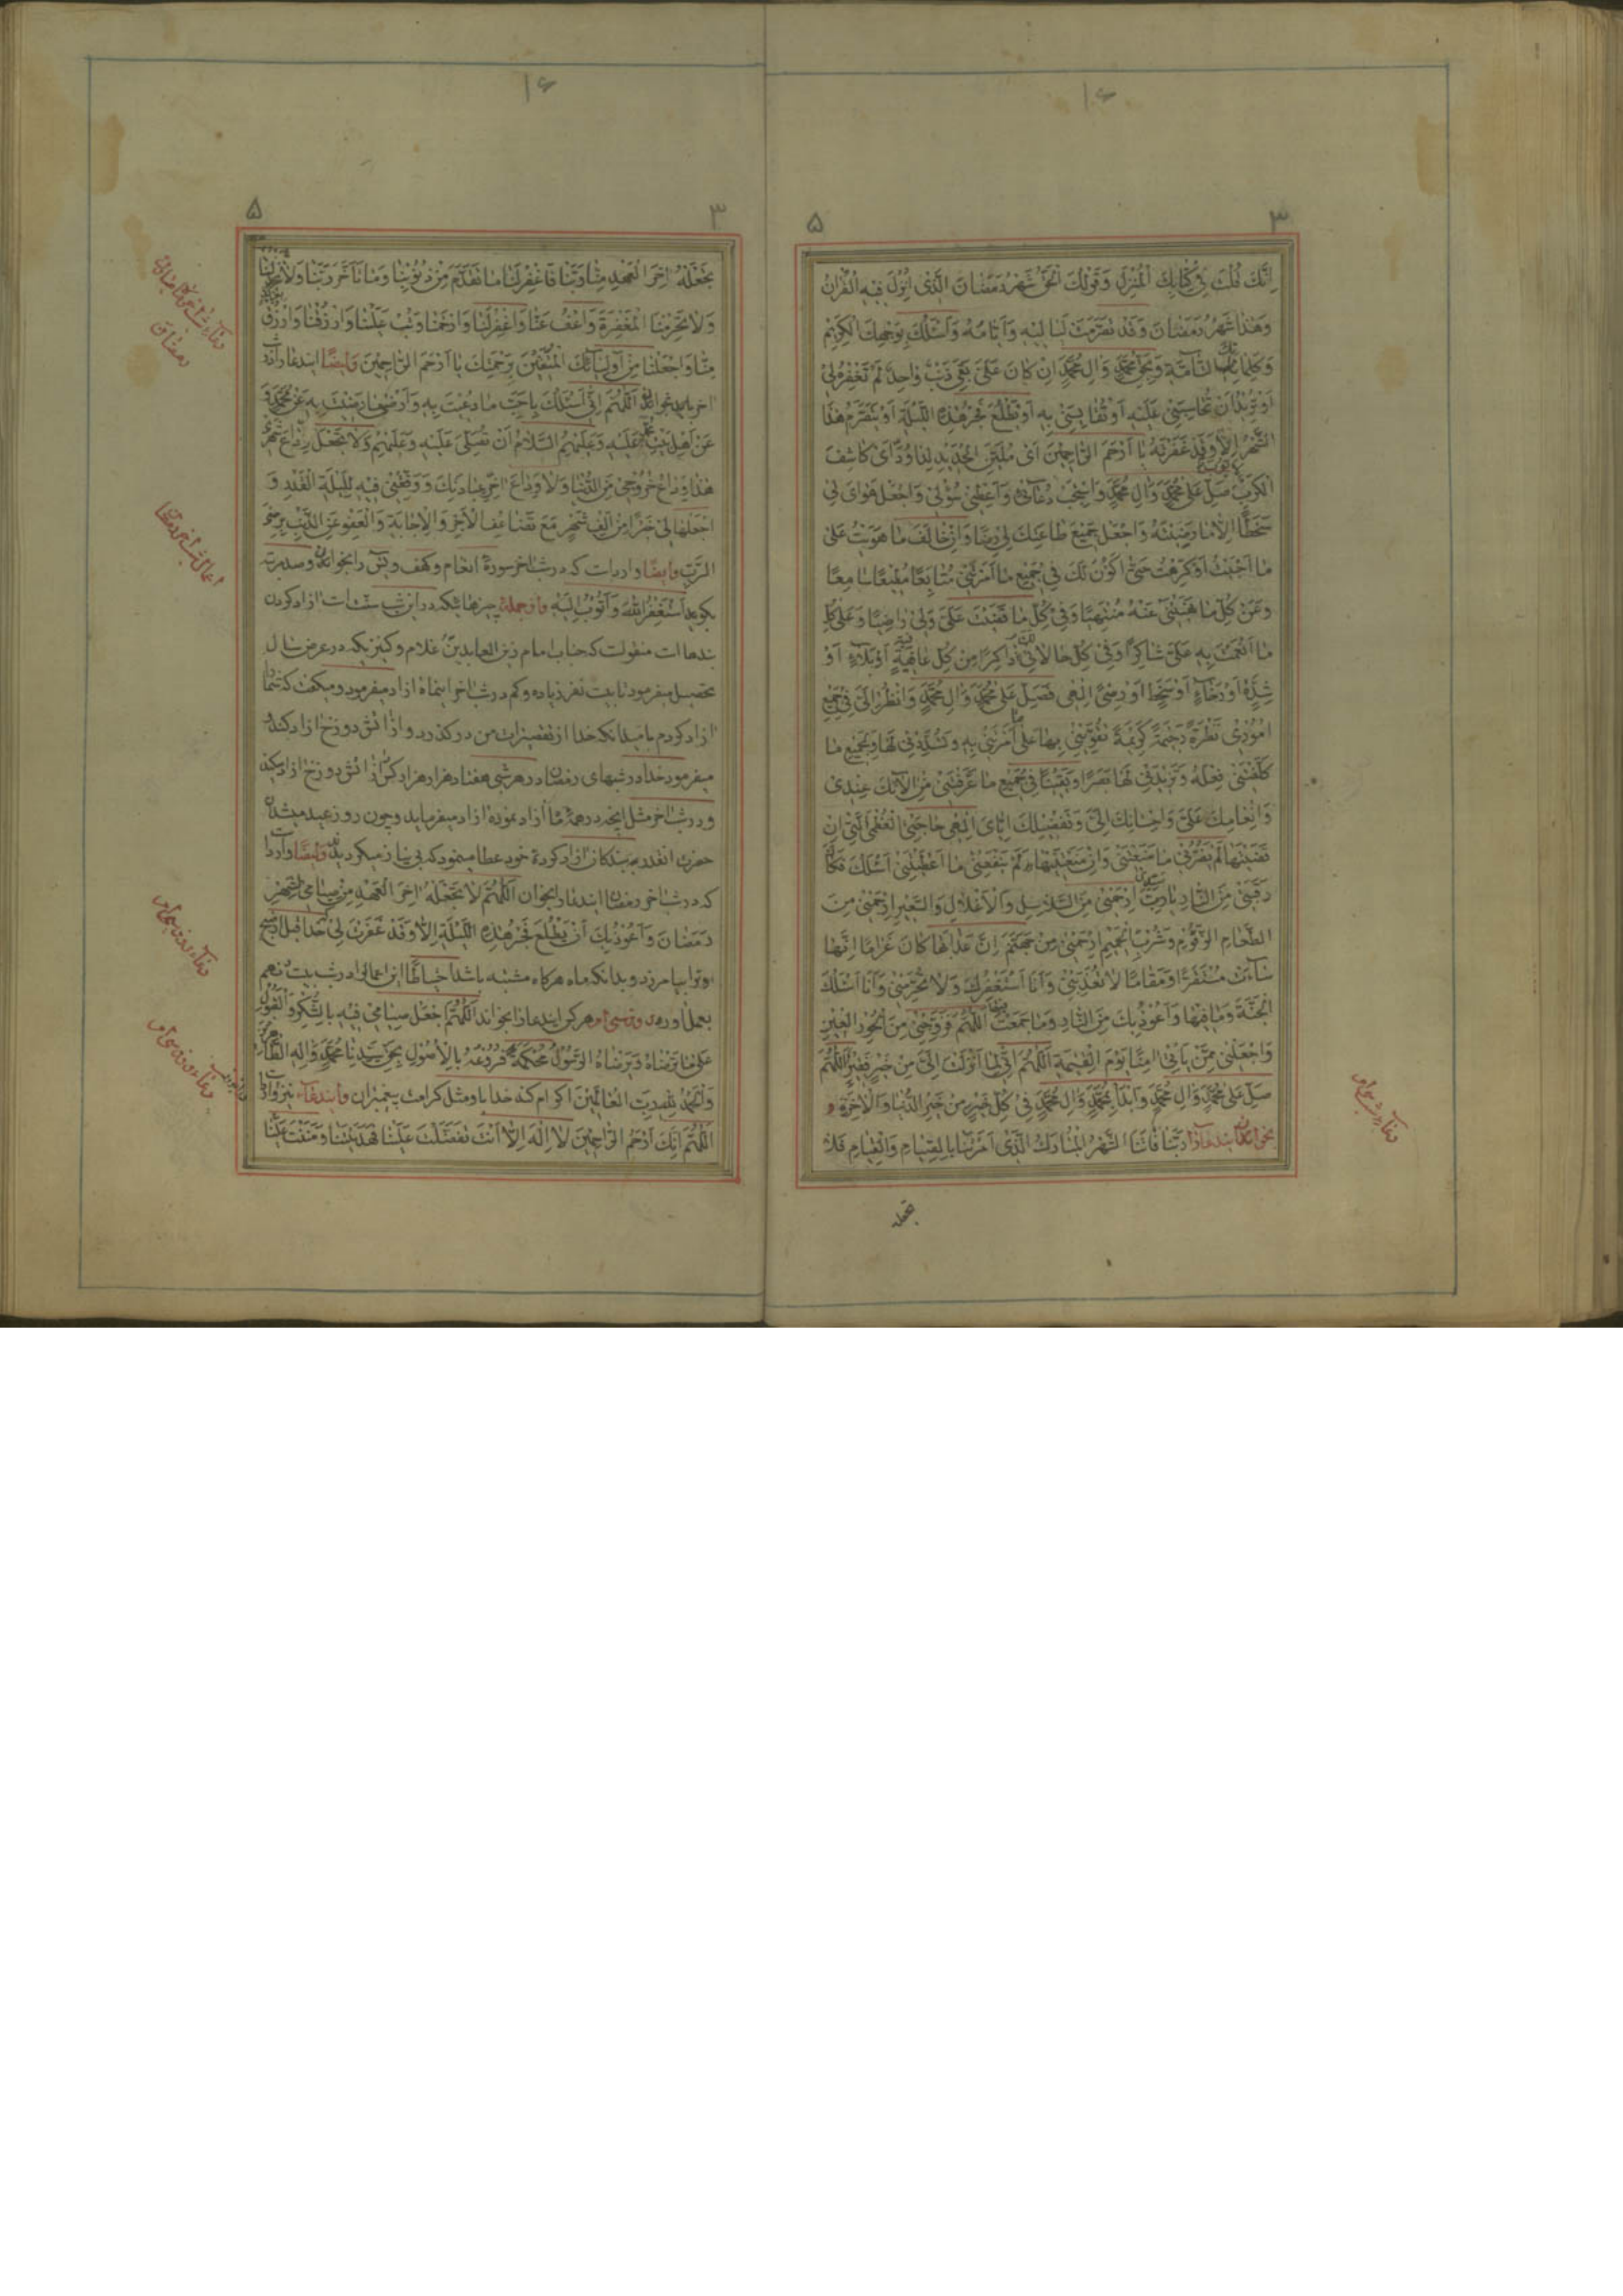 ۱۶
۳ ۵
اِنَّكَ قُلْتَ فِي كِتَابِكَ الْمُنْزَلِ وَقَوْلُكَ الْحَقُّ شَهْرُ رَمَضَانَ الَّذِي اُنْزِلَ فِيهِ الْقُرْآنُ
وَهٰذَا شَهْرُ رَمَضَانَ وَقَدْ تَصَرَّمَتْ لَيَالِيْهِ وَاَيَّامُهُ وَاَسْئَلُكَ بِوَجْهِكَ الْكَرِيْمِ
وَكَلِمَاتِكَ التَّامَّةِ وَبِحَقِّ مُحَمَّدٍ وَآلِ مُحَمَّدٍ اِنْ كَانَ عَلَيَّ بَقِيَ ذَنْبٌ وَاحِدٌ لَمْ تَغْفِرْهُ لِيْ
اَوْ تُرِيْدُ اَنْ تُحَاسِبَنِيْ عَلَيْهِ اَوْ تُقَايِسَنِيْ بِهِ اَوْ يَطْلُعَ فَجْرُ هٰذِهِ اللَّيْلَةِ اَوْ يَتَصَرَّمَ هٰذَا
الشَّهْرُ اِلَّا وَقَدْ غَفَرْتَهُ يَا اَرْحَمَ الرَّاحِمِيْنَ اَيْ مُلَيِّنَ الْحَدِيْدِ لِدَاوُدَ اَيْ كَاشِفَ
الْكَرْبِ صَلِّ عَلَى مُحَمَّدٍ وَآلِ مُحَمَّدٍ وَاسْتَجِبْ دُعَائِيْ وَاَعْطِنِيْ سُؤْلِيْ وَاجْعَلْ هَوَايَ لِيْ
سَخَطًا اِلَّا مَا رَضِيْتَهُ وَاجْعَلْ جَمِيْعَ طَاعَتِكَ لِيْ رِضًا وَاِنْ خَالَفَ مَا هَوِيْتُ عَلٰى
مَا اَحْبَبْتُ اَوْ كَرِهْتُ حَتّٰى اَكُوْنَ لَكَ فِيْ جَمِيْعِ مَا اَمَرْتَنِيْ مُتَابِعًا مُطِيْعًا سَامِعًا
وَعَنْ كُلِّ مَا نَهَيْتَنِيْ عَنْهُ مُنْتَهِيًا وَفِيْ كُلِّ مَا قَضَيْتَ عَلَيَّ وَلِيْ رَاضِيًا وَعَلٰى كُلِّ
مَا اَنْعَمْتَ بِهِ عَلَيَّ شَاكِرًا وَفِيْ كُلِّ حَالَاتِيْ لَكَ ذَاكِرًا مِنْ كُلِّ عَافِيَةٍ اَوْ بَلَاءٍ اَوْ
شِدَّةٍ اَوْ رَخَاءٍ اَوْ سَخَطٍ اَوْ رِضًى اِلٰهِيْ فَصَلِّ عَلٰى مُحَمَّدٍ وَآلِ مُحَمَّدٍ وَانْظُرْ اِلَيَّ فِيْ جَمِيْعِ
اُمُوْرِيْ نَظْرَةً رَحِيْمَةً كَرِيْمَةً تُقَوِّيْنِيْ بِهَا عَلٰى مَا اَمَرْتَنِيْ بِهِ وَتُسَدِّدُنِيْ لَهَا وَبِجَمِيْعِ مَا
كَلَّفْتَنِيْ فِعْلَهُ وَتَزِيْدُنِيْ لَهَا بَصَرًا وَيَقِيْنًا فِيْ جَمِيْعِ مَا عَرَّفْتَنِيْ مِنْ اٰلَائِكَ عِنْدِيْ
وَاِنْعَامِكَ عَلَيَّ وَاِحْسَانِكَ اِلَيَّ وَتَفْضِيْلِكَ اِيَّايَ اِلٰهِيْ حَاجَتِيَ الْعُظْمٰى الَّتِيْ اِنْ
قَضَيْتَهَا لَمْ يَضُرَّنِيْ مَا مَنَعْتَنِيْ وَاِنْ مَنَعْتَنِيْهَا لَمْ يَنْفَعْنِيْ مَا اَعْطَيْتَنِيْ اَسْئَلُكَ فَكَاكَ
رَقَبَتِيْ مِنَ النَّارِ يَا رَبِّ سَيِّدِيْ اِرْحَمْنِيْ مِنَ السَّلَاسِلِ وَالْاَغْلَالِ وَالسَّعِيْرِ اِرْحَمْنِيْ مِنَ
الطَّعَامِ الزَّقُّوْمِ وَشُرْبِ الْحَمِيْمِ اِرْحَمْنِيْ مِنْ جَهَنَّمَ اِنَّ عَذَابَهَا كَانَ غَرَامًا اِنَّهَا
سَاءَتْ مُسْتَقَرًّا وَمُقَامًا لَا تُعَذِّبْنِيْ وَاَنَا اَسْتَغْفِرُكَ وَلَا تَحْرِمْنِيْ وَاَنَا اَسْئَلُكَ
الْجَنَّةَ وَمَا فِيْهَا وَاَعُوْذُ بِكَ مِنَ النَّارِ وَمَا جَمَعَتْ اللّٰهُمَّ فَزَوِّجْنِيْ مِنَ الْحُوْرِ الْعِيْنِ
وَاجْعَلْنِيْ مِمَّنْ يَأْتِيْ اٰمِنًا يَوْمَ الْقِيٰمَةِ اللّٰهُمَّ اِنِّيْ لِمَا اَنْزَلْتَ اِلَيَّ مِنْ خَيْرٍ فَقِيْرٌ اللّٰهُمَّ
صَلِّ عَلٰى مُحَمَّدٍ وَآلِ مُحَمَّدٍ وَابْدَأْ بِمُحَمَّدٍ وَآلِ مُحَمَّدٍ فِيْ كُلِّ خَيْرٍ مِنْ خَيْرِ الدُّنْيَا وَالْاٰخِرَةِ و
بخواند ايندعا را رَبَّنَا فَاتَنَا الشَّهْرُ الْمُبَارَكُ الَّذِيْ اَمَرْتَنَا بِالصِّيَامِ وَالْقِيَامِ فَلَا
تجعله
۱۶
۳ ۵
تَجْعَلْهُ اٰخِرَ الْعَهْدِ مِنَّا رَبَّنَا فَاغْفِرْ لَنَا مَا تَقَدَّمَ مِنْ ذُنُوْبِنَا وَمَا تَاَخَّرَ رَبَّنَا وَلَا
وَلَا تَحْرِمْنَا الْمَغْفِرَةَ وَاعْفُ عَنَّا وَاغْفِرْ لَنَا وَارْحَمْنَا وَتُبْ عَلَيْنَا وَارْزُقْنَا وَارْزُقْ
مِنَّا وَاجْعَلْنَا مِنْ اَوْلِيَائِكَ الْمُتَّقِيْنَ بِرَحْمَتِكَ يَا اَرْحَمَ الرَّاحِمِيْنَ وايضا ايندعا را در شب
اخر بايد خواند اَللّٰهُمَّ اِنِّيْ اَسْئَلُكَ بِاَحَبِّ مَا دُعِيْتَ بِهِ وَاَرْضٰى مَا رَضِيْتَ بِهِ عَنْ مُحَمَّدٍ وَ
عَنْ اَهْلِ بَيْتِ مُحَمَّدٍ عَلَيْهِ وَعَلَيْهِمُ السَّلَامُ اَنْ تُصَلِّيَ عَلَيْهِ وَعَلَيْهِمْ وَلَا تَجْعَلْ وَدَاعَ شَهْرِيْ
هٰذَا وَدَاعَ خُرُوْجِيْ مِنَ الدُّنْيَا وَلَا وَدَاعَ اٰخِرِ عِبَادَتِكَ وَوَفِّقْنِيْ فِيْهِ لِلَيْلَةِ الْقَدْرِ وَ
اجْعَلْهَا لِيْ خَيْرًا مِنْ اَلْفِ شَهْرٍ مَعَ تَضَاعُفِ الْاَجْرِ وَالْاِجَابَةِ وَالْعَفْوِ عَنِ الذَّنْبِ بِرِضَى
الرَّبِّ وايضا وارد است كه در شب اخر سوره انعام و كهف و يس را بخواند و صد مرتبه
بگويد اَسْتَغْفِرُ اللّٰهَ وَاَتُوْبُ اِلَيْهِ واز جمله چيزهائيكه در اين شب سنت است ازاد كردن
بندها است منقولست كه جناب امام زين العابدين غلام و كنيزيكه در عرض سال
تحصيل ميفرمود تا بيست نفر زياده و كم در شب اخر اينماه ازاد ميفرمود و ميگفت كه شما
ازاد كردم باميدانكه خدا از تقصيرات من در گذرد و از اتش دوزخ ازاد كند و
ميفرمود خدا در شبهاى رمضان در هر شبى هفتاد هزار هزار كس از اتش دوزخ ازاد ميكند
و در شب اخر مثل انچه در همه ماه ازاد نموده ازاد ميفرمايد و چون روز عيد ميشد ان
حضرت انقدر به بندگان ازاد كرده خود عطا مينمود كه بى نياز ميگرديدند وايضا وارد
كه در شب اخر رمضان ايندعا را بخوان اَللّٰهُمَّ لَا تَجْعَلْهُ اٰخِرَ الْعَهْدِ مِنْ صِيَامِيْ لِشَهْرِ
رَمَضَانَ وَاَعُوْذُ بِكَ اَنْ يَطْلُعَ فَجْرُ هٰذِهِ اللَّيْلَةِ اِلَّا وَقَدْ غَفَرْتَ لِيْ خدا قبل از صبح
او را بيامرزد و بدانكه ماه هرگاه مشتبه باشد احتياطا اين اعمال را در شب بيست و نهم
بعمل اورد و در روز سى ام هر كس ايندعا را بخواند اَللّٰهُمَّ اجْعَلْ صِيَامِيْ فِيْهِ بِالشُّكْرِ وَالْقَبُوْلِ
عَلٰى مَا تَرْضَاهُ وَيَرْضَاهُ الرَّسُوْلُ مُحْكَمَةً فُرُوْعُهُ بِالْاُصُوْلِ بِحَقِّ سَيِّدِنَا مُحَمَّدٍ وَآلِهِ الطَّاهِرِيْنَ
وَالْحَمْدُ لِلّٰهِ رَبِّ الْعَالَمِيْنَ اكرام كند خدا باو مثل كرامت پيغمبران وايندعاء نيز وارد است
اَللّٰهُمَّ اِنَّكَ اَرْحَمُ الرَّاحِمِيْنَ لَا اِلٰهَ اِلَّا اَنْتَ تَفَضَّلْتَ عَلَيْنَا فَهَدَيْتَنَا وَمَنَنْتَ عَلَيْنَا
اعمال شب اخر رمضان
دعاء روز سى ام
دعاء روز سى ام
دعاء شب سى ام